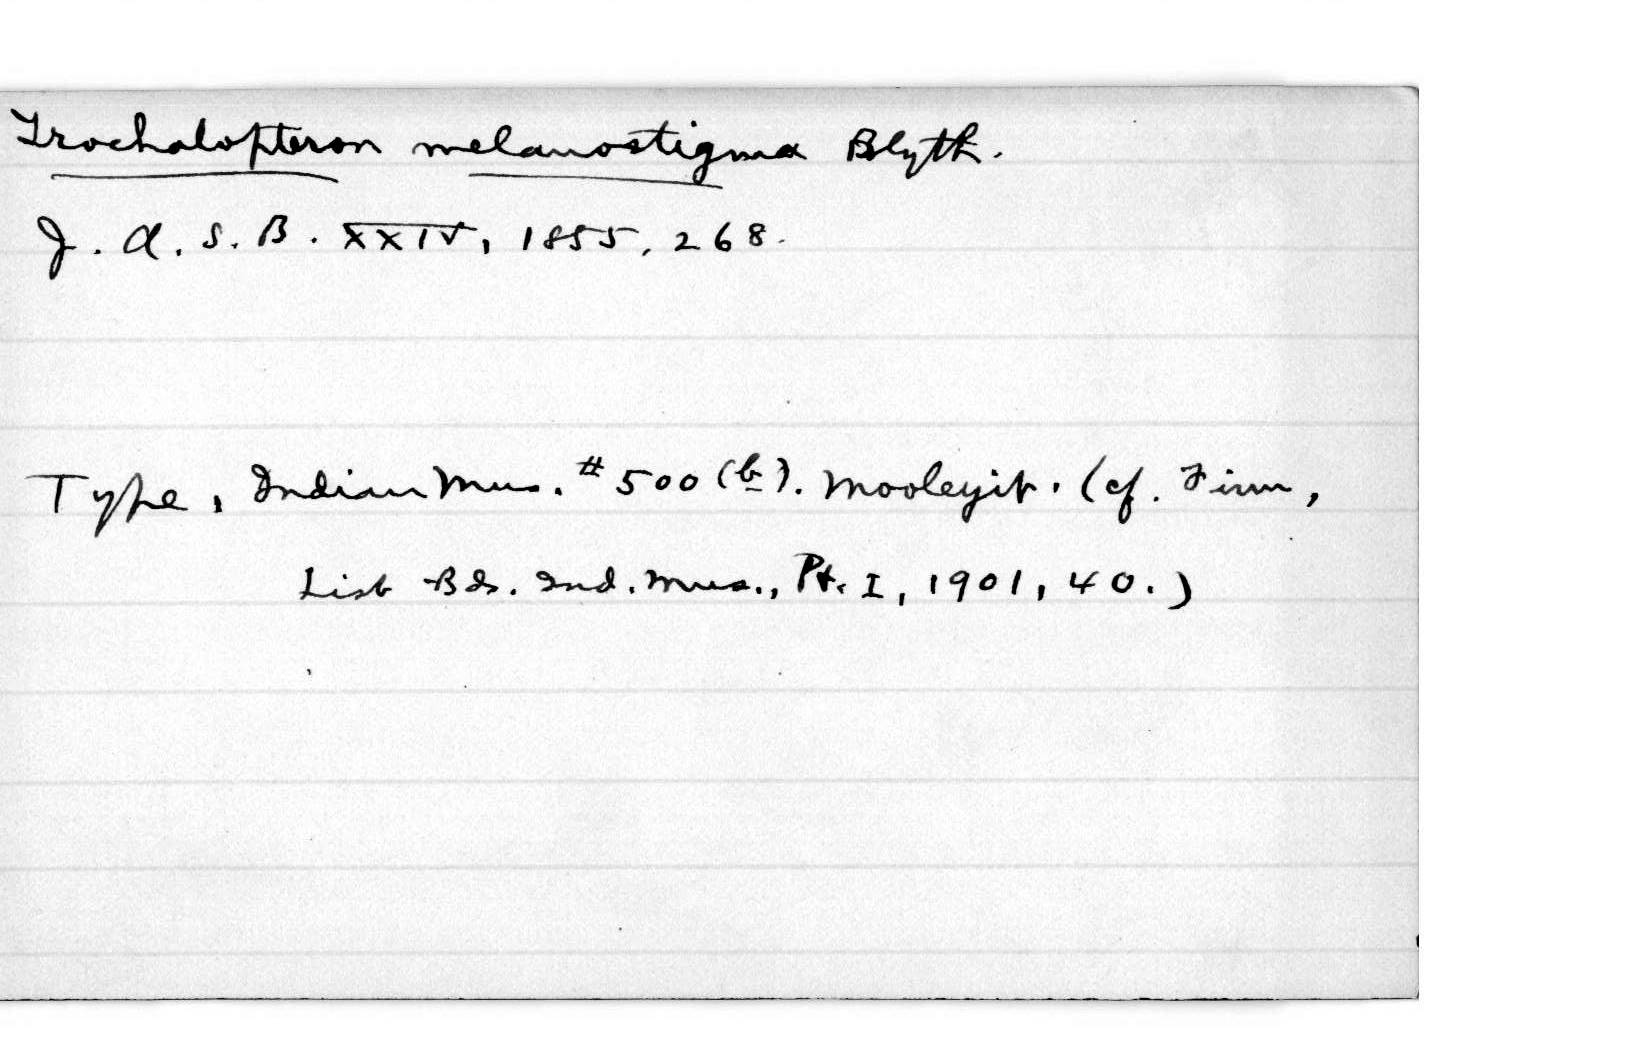 Trochalopteron melanostigma Blyth.
J. A. S. B. XXIV, 1855, 268.
Type, Indian Mus. #500 (b). Mooleyit. (cf. Finn,
List Bds. Ind. Mus., Pt. I, 1901, 40.)